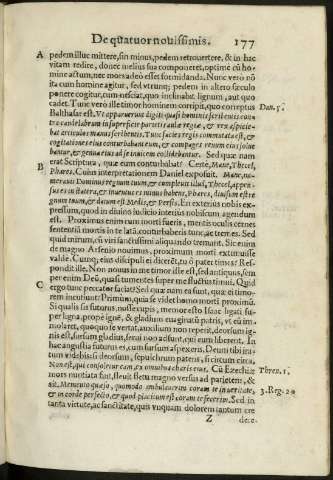 De quatuor nouissimis. 177
A pedem illuc mittere, sin minus, pedem retrouertere, & in hac
vitam redire, donec melius sua componeret, optimè cū ho-
mine actum, nec mors adeò esset formidanda. Nunc verò nō
ita cum homine agitur, sed vtrunq; pedem in altero sæculo
ponere cogitur, cum nesciat, quo inclinabit lignum, aut quo
cadet. Tunc verò ille timor hominem corripit, quo correptus
Balthasar est. Vt apparuerunt digiti quasi hominis scribentis con-
tra candelabrum in superficie parietis aulæ regiæ, & rex aspicie-
bat articulos manus scribentis. Tunc facies regis commutata est, &
cogitationes eius conturbabant eum, & compages renum eius solue-
bantur, & genua eius ad se inuicem collidebantur. Sed quæ nam
erat Scriptura, quæ eum conturbabat? Certè, Mane, Thecel,
B Phares. Cuius interpretationem Daniel exposuit. Mane, nu-
merauit Dominus regnum tuum, & compleuit illud, Thecel, appen-
sus es in statera, & inuentus es minus habens, Phares, diuisum est re-
gnum tuum, & datum est Medis, et Persis. En exterius nobis ex-
pressum, quod in diuino iudicio interius nobiscum agendum
est. Proximus enim cum fueris morti, mentis oculis cernes
sententiā mortis in te latā, conturbaberis tunc, ac tremes. Sed
quid mirum, si viri sanctissimi aliquando tremant. Sic enim
de magno Arsenio nouimus, proximum morti extimuisse
valde. Cunq; eius discipuli ei dicerēt, tu ò pater times? Res-
pondit ille. Non nouus in me timor iste est, sed antiquus, sem
per enim Deū, quasi tumentes super me fluctus timui. Quid
C ergo tunc peccator faciat? Sed quæ nam ea sunt, quæ ei timo-
rem incutiunt? Primùm, quia se videt homo morti proximū.
Si qualis sit futurus, nosse expis, memor esto Isaac ligati su-
per ligna propè ignē, & gladium euaginatū patris, vt eū im-
molaret, quoquo se vertat, auxilium non reperit, deorsum ig-
nis est, sursum gladius, ferai non adsunt, qui eum liberent. In
hac angustia futurus es, cum sursum aspexeris, Deum tibi ira-
tum videbis: si deorsum, sepulchrum patens, si circum circa,
Non est, qui consoletur eam ex omnibus charis eius. Cū Ezechiæ
mors nuntiata fuit, fleuit fletu magno versus ad parietem, &
ait, Memento quæso, quomodo ambulauerim coram te in veritate,
& in corde perfecto, & quod placitum est coram te fecerim. Sed in
tanta virtute, ac sanctitate, quis vnquam dolorem tantum cre
Z deret.
Dan. 5.
Thren. 1.
3. Reg. 20